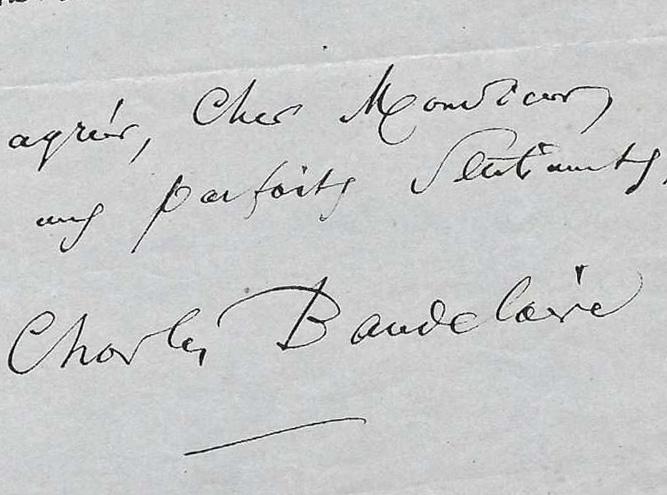 agréer, Cher Monsieur,
mes parfaits Sentiments,
Charles Baudelaire